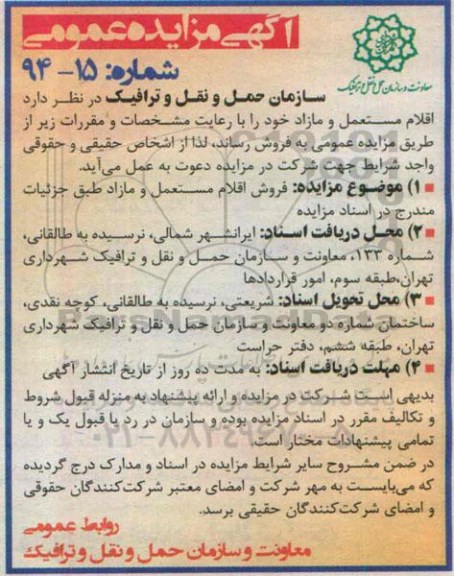 آگهی مزایده عمومی
شماره: ۱۵- ۹۴
معاونت و سازمان حمل و نقل و ترافیک
سازمان حمل و نقل و ترافیک در نظر دارد
اقلام مستعمل و مازاد خود را با رعایت مشخصات و مقررات زیر از
طریق مزایده عمومی به فروش رساند، لذا از اشخاص حقیقی و حقوقی
واجد شرایط جهت شرکت در مزایده دعوت به عمل می‌آید.
■ ۱) موضوع مزایده: فروش اقلام مستعمل و مازاد طبق جزئیات
مندرج در اسناد مزایده
■ ۲) محل دریافت اسناد: ایرانشهر شمالی، نرسیده به طالقانی،
شماره ۱۳۳، معاونت و سازمان حمل و نقل و ترافیک شهرداری
تهران،طبقه سوم، امور قراردادها
■ ۳) محل تحویل اسناد: شریعتی، نرسیده به طالقانی، کوچه نقدی،
ساختمان شماره دو معاونت و سازمان حمل و نقل و ترافیک شهرداری
تهران، طبقه ششم، دفتر حراست
■ ۴) مهلت دریافت اسناد: به مدت ده روز از تاریخ انتشار آگهی
بدیهی است شرکت در مزایده و ارائه پیشنهاد به منزله قبول شروط
و تکالیف مقرر در اسناد مزایده بوده و سازمان در رد یا قبول یک و یا
تمامی پیشنهادات مختار است.
در ضمن مشروح سایر شرایط مزایده در اسناد و مدارک درج گردیده
که می‌بایست به مهر شرکت و امضای معتبر شرکت‌کنندگان حقوقی
و امضای شرکت‌کنندگان حقیقی برسد.
روابط عمومی
معاونت و سازمان حمل و نقل و ترافیک
ParsNamadData